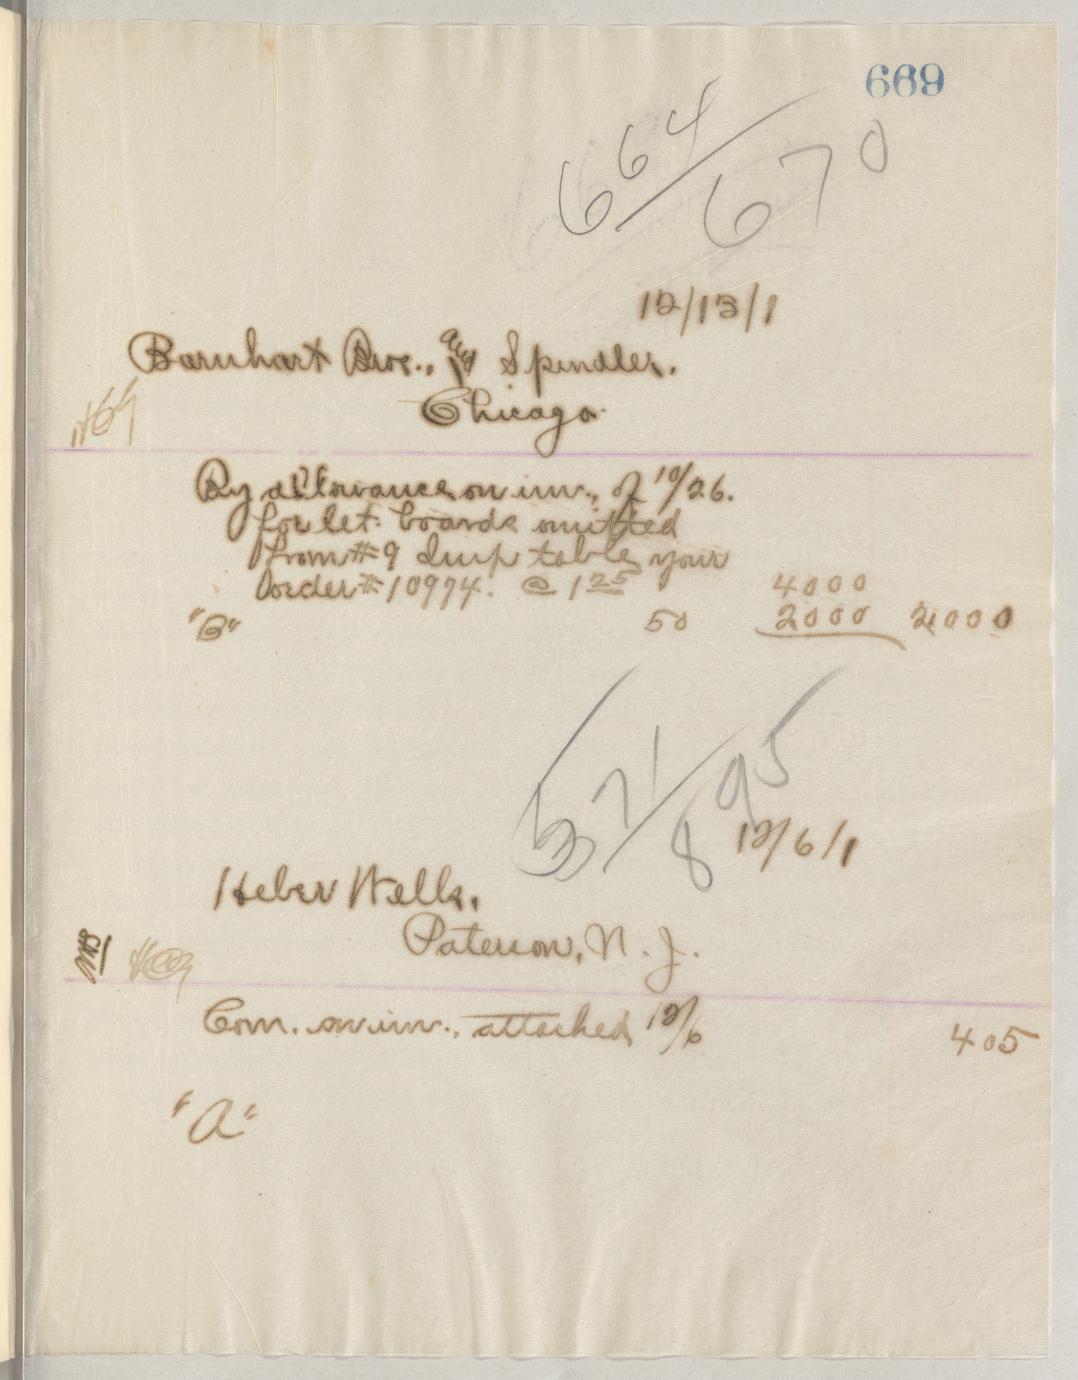 669
664/670
12/13/1
Barnhart Bros., and Spindler.
Chicago.
By allowance on inv., of 10/26.
for let. boards omitted
from #9 dump table, your
order # 10974. @ 1 25 4000
"B" 50 2000 2000
571/895
12/6/1
Heber Wells,
Paterson, N. J.
Com. on inv., attached 12/6 405
"A"